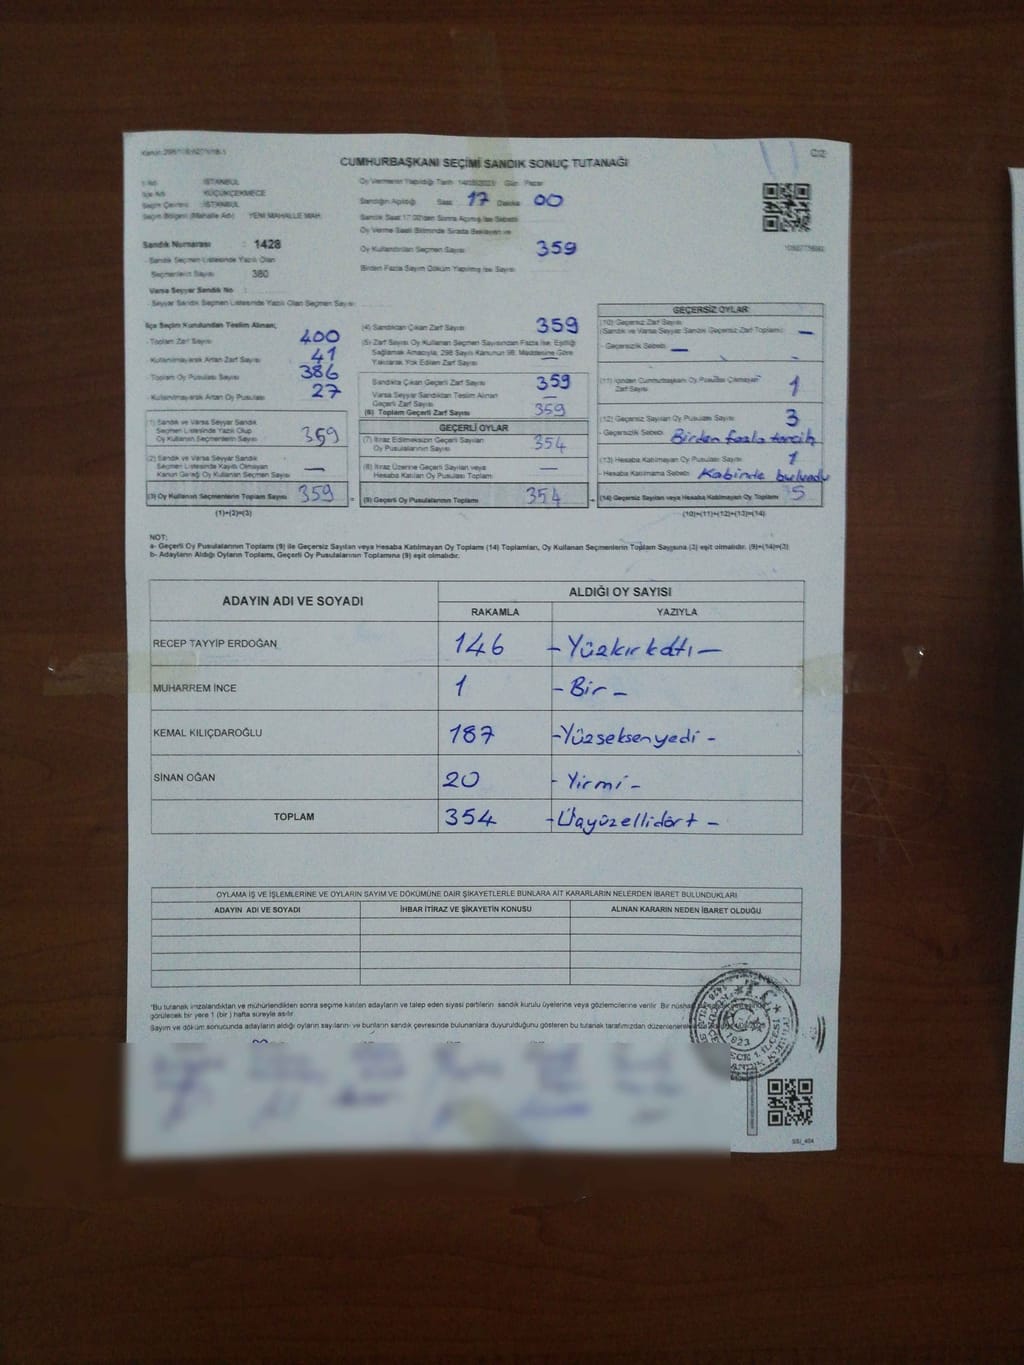 CUMHURBAŞKANI SEÇİMİ SANDIK SONUÇ TUTANAĞI
C/2
İl Adı : İSTANBUL
İlçe Adı : KÜÇÜKÇEKMECE
Seçim Çevresi : İSTANBUL
Seçim Bölgesi (Mahalle Adı) : YENİ MAHALLE MAH.
Sandık Numarası : 1428
- Sandık Seçmen Listesinde Yazılı Olan
Seçmenlerin Sayısı 380
Varsa Seyyar Sandık No
- Seyyar Sandık Seçmen Listesinde Yazılı Olan Seçmen Sayısı
Oy Vermenin Yapıldığı Tarih 14/05/2023 Gün Pazar
Sandığın Açıldığı Saat 17 Dakika 00
Sandık Saat 17.00'den Sonra Açılmış İse Sebebi
Oy Verme Saati Bitiminde Sırada Bekleyen ve
Oy Kullandırılan Seçmen Sayısı 359
Birden Fazla Sayım Döküm Yapılmış İse Sayısı
İlçe Seçim Kurulundan Teslim Alınan;
- Toplam Zarf Sayısı 400
- Kullanılmayarak Artan Zarf Sayısı 41
- Toplam Oy Pusulası Sayısı 386
- Kullanılmayarak Artan Oy Pusulası 27
(1) Sandık ve Varsa Seyyar Sandık
Seçmen Listesinde Yazılı Olup
Oy Kullanan Seçmenlerin Sayısı 359
(2) Sandık ve Varsa Seyyar Sandık
Seçmen Listesinde Kayıtlı Olmayan
Kanun Gereği Oy Kullanan Seçmen Sayısı —
(3) Oy Kullanan Seçmenlerin Toplam Sayısı 359
(1)+(2)=(3)
(4) Sandıktan Çıkan Zarf Sayısı 359
(5) Zarf Sayısı Oy Kullanan Seçmen Sayısından Fazla İse, Eşitliği
Sağlamak Amacıyla, 298 Sayılı Kanunun 98. Maddesine Göre
Yakılarak Yok Edilen Zarf Sayısı —
Sandıkta Çıkan Geçerli Zarf Sayısı 359
Varsa Seyyar Sandıktan Teslim Alınan
Geçerli Zarf Sayısı —
(6) Toplam Geçerli Zarf Sayısı 359
GEÇERLİ OYLAR
(7) İtiraz Edilmeksizin Geçerli Sayılan
Oy Pusulalarının Sayısı 354
(8) İtiraz Üzerine Geçerli Sayılan veya
Hesaba Katılan Oy Pusulası Toplam —
= (9) Geçerli Oy Pusulalarının Toplamı 354
GEÇERSİZ OYLAR
(10) Geçersiz Zarf Sayısı
(Sandık ve Varsa Seyyar Sandık Geçersiz Zarf Toplamı) —
- Geçersizlik Sebebi —
(11) İçinden Cumhurbaşkanı Oy Pusulası Çıkmayan
Zarf Sayısı 1
(12) Geçersiz Sayılan Oy Pusulası Sayısı 3
- Geçersizlik Sebebi Birden fazla tercih
(13) Hesaba Katılmayan Oy Pusulası Sayısı 1
- Hesaba Katılmama Sebebi Kabinde bulundu
+ (14) Geçersiz Sayılan veya Hesaba Katılmayan Oy Toplamı 5
(10)+(11)+(12)+(13)=(14)
NOT:
a- Geçerli Oy Pusulalarının Toplamı (9) ile Geçersiz Sayılan veya Hesaba Katılmayan Oy Toplamı (14) Toplamları, Oy Kullanan Seçmenlerin Toplam Sayısına (3) eşit olmalıdır. (9)+(14)=(3)
b- Adayların Aldığı Oyların Toplamı, Geçerli Oy Pusulalarının Toplamına (9) eşit olmalıdır.
ADAYIN ADI VE SOYADI
ALDIĞI OY SAYISI
RAKAMLA YAZIYLA
RECEP TAYYİP ERDOĞAN 146 - Yüzkırkaltı -
MUHARREM İNCE 1 - Bir -
KEMAL KILIÇDAROĞLU 187 - Yüzseksenyedi -
SİNAN OĞAN 20 - Yirmi -
TOPLAM 354 - Üçyüzellidört -
OYLAMA İŞ VE İŞLEMLERİNE VE OYLARIN SAYIM VE DÖKÜMÜNE DAİR ŞİKAYETLERLE BUNLARA AİT KARARLARIN NELERDEN İBARET BULUNDUKLARI
ADAYIN ADI VE SOYADI İHBAR İTİRAZ VE ŞİKAYETİN KONUSU ALINAN KARARIN NEDEN İBARET OLDUĞU
*Bu tutanak imzalandıktan ve mühürlendikten sonra seçime katılan adayların ve talep eden siyasi partilerin sandık kurulu üyelerine veya gözlemcilerine verilir. Bir nüsha
görülecek bir yere 1 (bir) hafta süreyle asılır.
Sayım ve döküm sonucunda adayların aldığı oyların sayılarını ve bunların sandık çevresinde bulunanlara duyurulduğunu gösteren bu tutanak tarafımızdan
T.C.
1923
SSİ_404